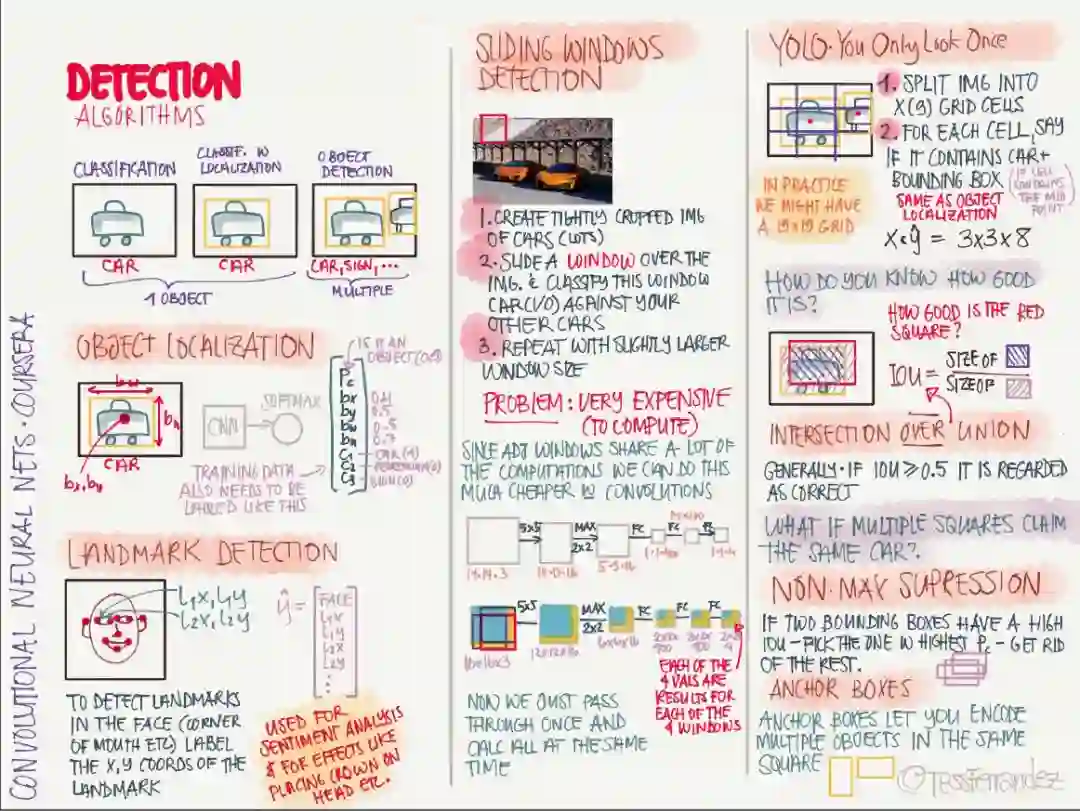 CONVOLUTIONAL NEURAL NETS · COURSERA
DETECTION
ALGORITHMS
CLASSIFICATION
CLASSIF. W
LOCALIZATION
OBJECT
DETECTION
CAR
CAR
CAR, SIGN, ...
1 OBJECT
MULTIPLE
OBJECT LOCALIZATION
IS IT AN
OBJECT
bw
bh
CAR
bx, by
CNN
SOFTMAX
Pc
bx
by 0.5
bw 0.5
bh 0.7
C1
C2
C3
TRAINING DATA
ALSO NEEDS TO BE
LABELED LIKE THIS
LANDMARK DETECTION
L1X, L1Y
L2X, L2Y
ŷ =
FACE
L1X
L1Y
L2X
L2Y
⋮
TO DETECT LANDMARKS
IN THE FACE (CORNER
OF MOUTH ETC) LABEL
THE X,Y COORDS OF THE
LANDMARK
USED FOR
SENTIMENT ANALYSIS
& FOR EFFECTS LIKE
PLACING CROWN ON
HEAD ETC.
SLIDING WINDOWS
DETECTION
1. CREATE TIGHTLY CROPPED IMG
OF CARS (LOTS)
2. SLIDE A WINDOW OVER THE
IMG. & CLASSIFY THIS WINDOW
CAR(1/0) AGAINST YOUR
OTHER CARS
3. REPEAT WITH SLIGHTLY LARGER
WINDOW SIZE
PROBLEM: VERY EXPENSIVE
(TO COMPUTE)
SINCE ADJ WINDOWS SHARE A LOT OF
THE COMPUTATIONS WE CAN DO THIS
CHEAPER W CONVOLUTIONS
5x5
MAX
2x2
FC
FC
14·14·3
5·5·16
5x5
MAX
2x2
FC
FC
FC
16x16x3
12x12x16
6x6x16
EACH OF THE
4 VALS ARE
RESULTS FOR
EACH OF THE
4 WINDOWS
NOW WE JUST PASS
THROUGH ONCE AND
CALC ALL AT THE SAME
TIME
YOLO·You Only Look Once
1. SPLIT IMG INTO
X(9) GRID CELLS
2. FOR EACH CELL, SAY
IF IT CONTAINS CAR +
BOUNDING BOX
(IF CELL
CONTAINS
THE MID
POINT)
SAME AS OBJECT
LOCALIZATION
IN PRACTICE
WE MIGHT HAVE
A 19x19 GRID
ŷ = 3x3x8
HOW DO YOU KNOW HOW GOOD
IT IS?
HOW GOOD IS THE RED
SQUARE?
IOU =
SIZE OF
SIZE OF
INTERSECTION OVER UNION
GENERALLY · IF IOU ≥ 0.5 IT IS REGARDED
AS CORRECT
WHAT IF MULTIPLE SQUARES CLAIM
THE SAME CAR?
NON·MAX SUPRESSION
IF TWO BOUNDING BOXES HAVE A HIGH
IOU – PICK THE ONE W HIGHEST Pc – GET RID
OF THE REST.
ANCHOR BOXES
ANCHOR BOXES LET YOU ENCODE
MULTIPLE OBJECTS IN THE SAME
SQUARE
©TessFerrandez